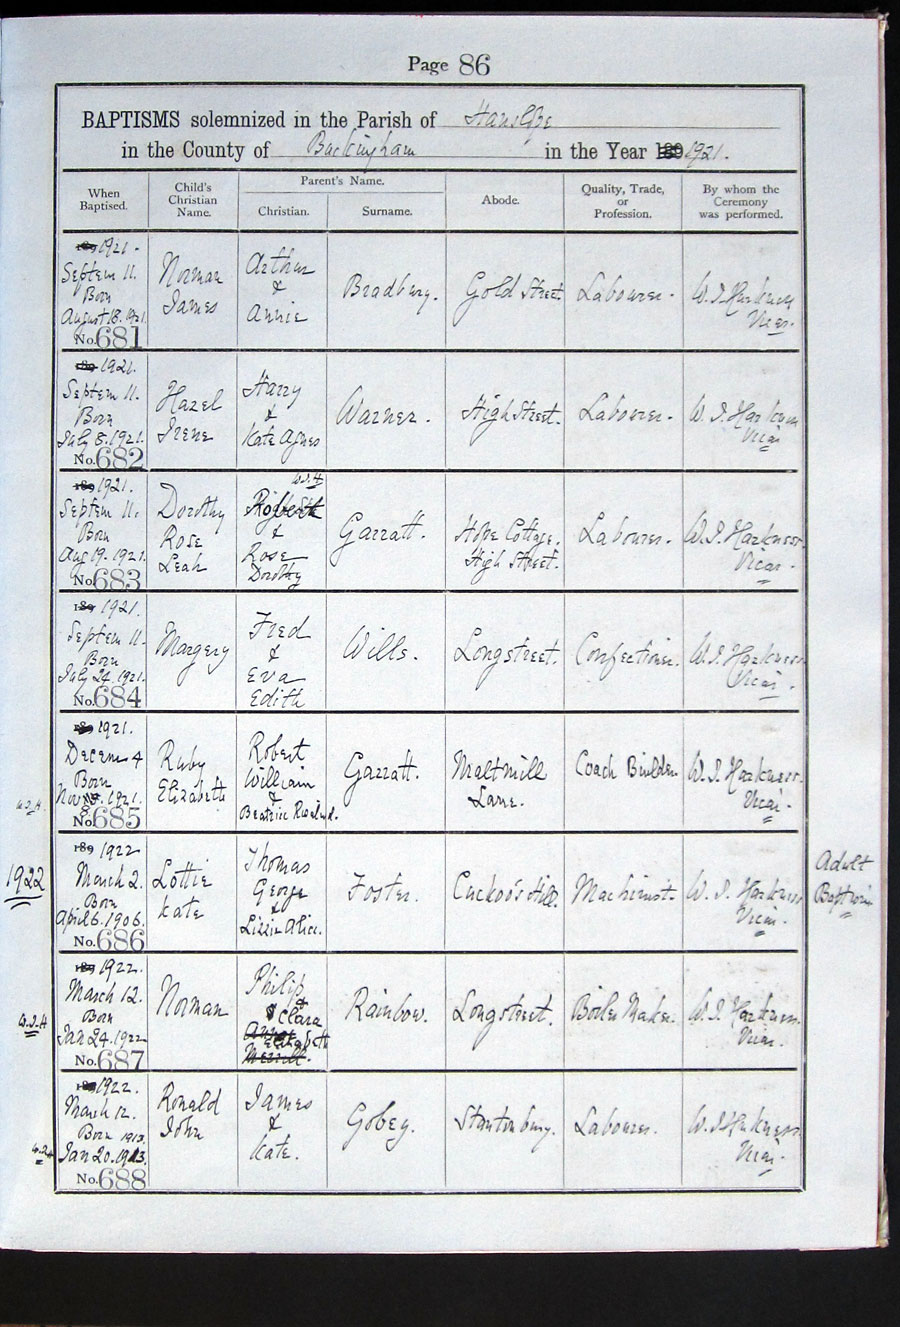 Page 86
BAPTISMS solemnized in the Parish of Hanslope
in the County of Buckingham in the Year 189 1921.
When Baptised.
Child's Christian Name.
Parent's Name.
Christian.
Surname.
Abode.
Quality, Trade, or Profession.
By whom the Ceremony was performed.
189 1921.
Septem 11.
Born
August 18. 1921.
No. 681
Norman
James
Arthur
&
Annie
Bradbury.
Gold Street.
Labourer.
W. J. Harkness
Vicar.
189 1921.
Septem 11.
Born
July 8. 1921.
No. 682
Hazel
Irene
Harry
&
Kate Agnes
Warner.
High Street.
Labourer.
W. J. Harkness
Vicar
189 1921.
Septem 11.
Born
Aug 19. 1921.
No. 683
Dorothy
Rose
Leah
W.J.H
&
Rose
Dorothy
Garratt.
Hope Cottage.
High Street.
Labourer.
W. J. Harkness.
Vicar.
189 1921.
Septem 11.
Born
July 24. 1921.
No. 684
Margery
Fred
&
Eva
Edith
Wills.
Longstreet.
Confectioner.
W. J. Harkness
Vicar.
189 1921.
Decem 4
Born
Nov 1921.
W.J.H.
No. 685
Ruby
Elizabeth
Robert
William
&
Beatrice Rosalind.
Garratt.
Maltmill
Lane.
Coach Builder
W. J. Harkness.
Vicar.
1922
189 1922
March 2.
Born
April 6. 1906.
No. 686
Lottie
Kate
Thomas
George
&
Lizzie Alice.
Foster.
Cuckoo's Hill.
Machinist.
W. J. Harkness
Vicar.
Adult
Baptism
189 1922.
March 12.
Born
W.J.H
Jan 24. 1922
No. 687
Norman
Philip
&
Clara
Elizabeth
Merrill.
Rainbow.
Longstreet.
Boiler Maker.
W. J. Harkness.
Vicar.
189 1922.
March 12.
Born 1913.
W.J.H
Jan 20. 1913.
No. 688
Ronald
John
James
&
Kate.
Gobey.
Stantonbury.
Labourer.
W. J. Harkness.
Vicar.